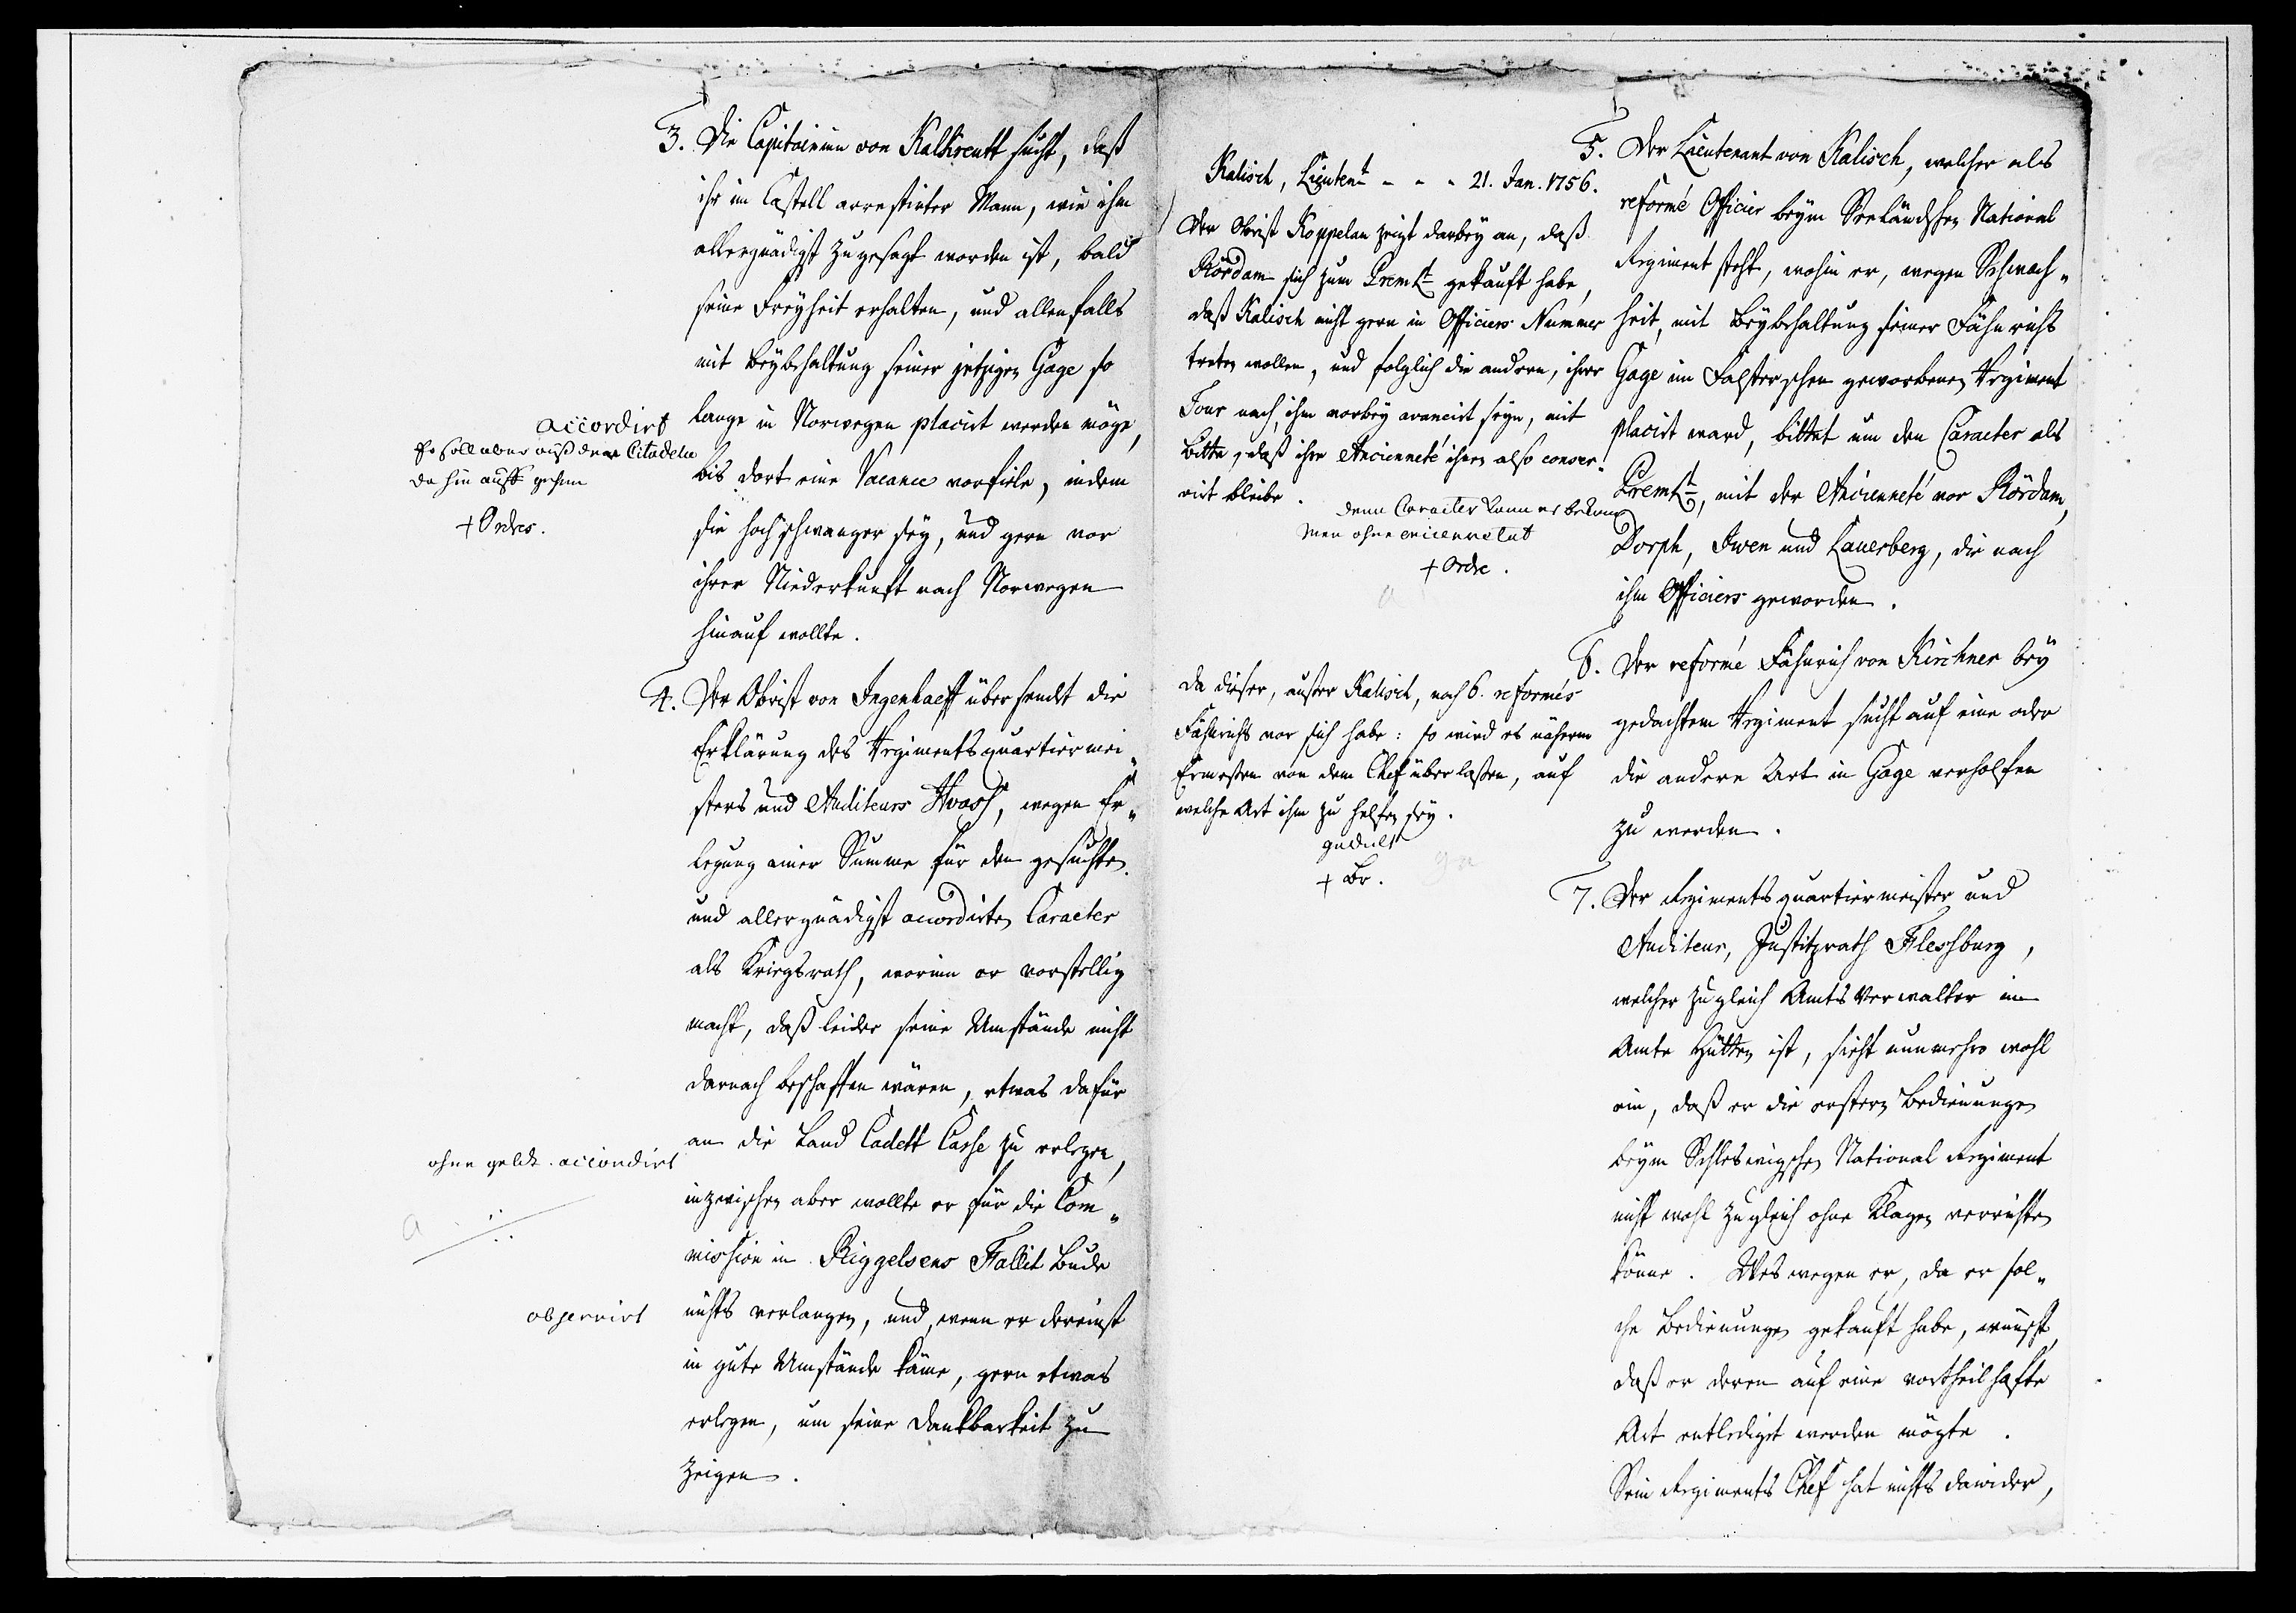 3. Die Capitainin von Kalkreutt sucht, daß
ihr im Castell arrestirter Mann, wie ihm
allergnädigst zugesagt worden ist, bald
seine Freyheit erhalten, und allenfalls
mit Beybehaltung seiner jetzigen Gage so
lange in Norwegen placirt werden möge,
bis dort eine Vacance vorfiele, indem
sie hochschwanger sey, und gern vor
ihrer Niederkunft nach Norwegen
hinauf wollte.
accordirt
Er soll aber auß der Citadelle
da hin auff gehen
+ Ordres.
4. Der Obrist von Ingenhaeff übersendt die
Erklärung des Regimentsquartiermei„
sters und Auditeurs Hvass, wegen Er„
legung einer Summe für den gesuchten
und allergnädigst accordirten Caracter
als Kriegsrath, worinn er vorstellig
macht, daß leider seine Umstände nicht
darnach beschaffen wären, etwas dafür
an die Land Cadett Casse zu erlegen,
inzwischen aber wollte er für die Com„
mission in Riggelsens Fallit Bude
nichts verlangen, und, wenn er dereinst
in gute Umstände käme, gern etwas
erlegen, um seine Dankbarkeit zu
zeigen.
ohne geldt accordirt
observirt
Kalisch, Lieutent - - - 21. Jan. 1756.
Der Obrist Koppelau zeigt darbey an, daß
Rördam sich zum PremLt gekauft habe,
daß Kalisch nicht gern in Officiers Nummer
treten wollen, und folglich die andern, ihrer
Tour nach, ihm vorbey avancirt seyn, mit
Bitte, daß ihre Ancienneté ihnen also conser„
virt bleibe.
denn Caracter kann er bekom
men ohne encienneteet
+ Ordre.
5. Der Lieutenant von Kalisch, welcher als
reformé Officier beym Seeländschen National
Regiment steht, wohin er, wegen Schwach„
heit, mit Beybehaltung seiner Fähnrichs
Gage im Falsterschen geworbenen Regiment
placirt ward, bittet um den Caracter als
PremLt, mit der Ancienneté vor Rördam,
Dorph, Iwen und Lauerberg, die nach
ihm Officiers geworden.
Da dieser, außer Kalisch, noch 6. reformés
Fähnrichs vor sich habe: so wird es näherm
Ermeßen von dem Chef überlaßen, auf
welche Art ihm zu helfen sey.
gedult
+ Br.
6. Der reformé Fähnrich von Kirchner bey
gedachtem Regiment sucht auf eine oder
die andere Art in Gage verholfen
zu werden.
7. Der Regimentsquartiermeister und
Auditeur, Justitzrath Flessburg,
welcher zugleich Amts Verwalter im
Amte Hütten ist, sieht nunmehro wohl
ein, daß er die erstern Bedienungen
beym Schleswigschen National Regiment
nicht wohl zugleich ohne Klagen verrichten
könne. Weswegen er, da er sol„
che Bedienungen gekauft habe, wünscht,
daß er deren auf eine vortheilhafte
Art entlediget werden mögte.
Sein Regiments Chef hat nichts dawider,